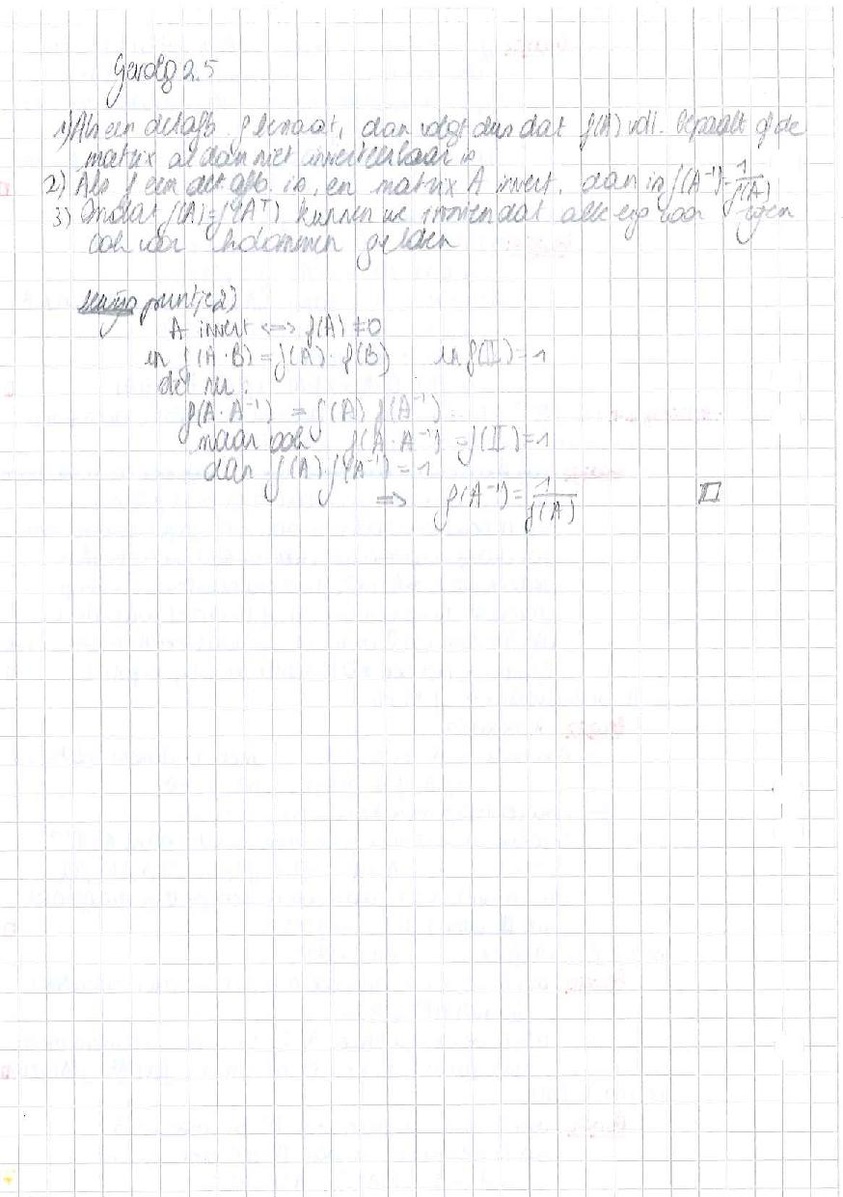 Gevolg 2.5
1) Als een det afb. f bestaat, dan volgt dus dat f(A) voll. bepaalt of de
matrix al dan niet inverteerbaar is
2) Als f een det afb. is, en matrix A invert. dan is f(A⁻¹) = 1/f(A)
3) Omdat f(A) = f(Aᵀ) kunnen we dat alle eig voor rijen
ook voor kolommen gelden
puntje 2)
A invert <=> f(A) ≠ 0
en f(A·B) = f(A)·f(B) en f(I) = 1
dus nu:
f(A·A⁻¹) = f(A) f(A⁻¹)
maar ook f(A·A⁻¹) = f(I) = 1
dan f(A) f(A⁻¹) = 1
=> f(A⁻¹) = 1/f(A) □